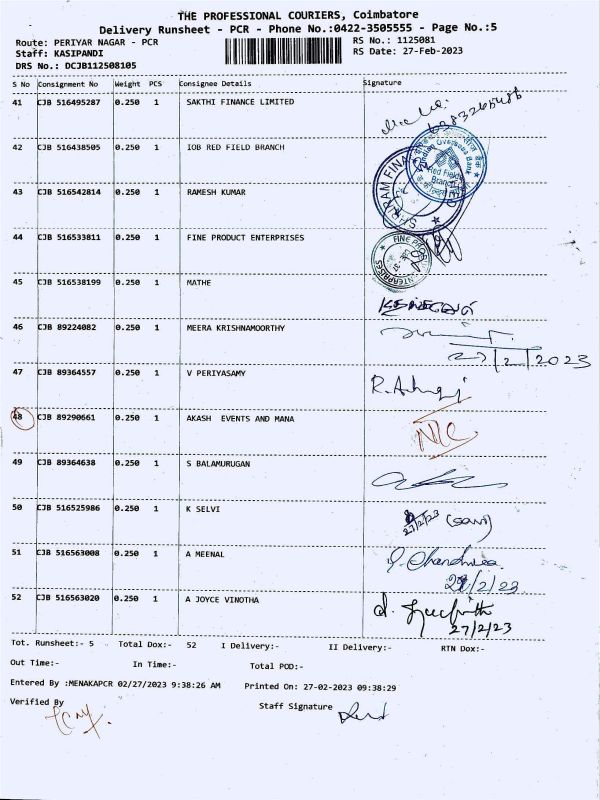 THE PROFESSIONAL COURIERS, Coimbatore
Delivery Runsheet - PCR - Phone No.:0422-3505555 - Page No.:5
Route: PERIYAR NAGAR - PCR
RS No.: 1125081
Staff: KASIPANDI
RS Date: 27-Feb-2023
DRS No.: DCJB112508105
S No Consignment No Weight PCS Consignee Details Signature
41 CJB 516495287 0.250 1 SAKTHI FINANCE LIMITED
42 CJB 516438505 0.250 1 IOB RED FIELD BRANCH
Indian Overseas Bank
Red Fields
Branch
43 CJB 516542814 0.250 1 RAMESH KUMAR
44 CJB 516533811 0.250 1 FINE PRODUCT ENTERPRISES
45 CJB 516538199 0.250 1 MATHE
46 CJB 89224082 0.250 1 MEERA KRISHNAMOORTHY
27/2/2023
47 CJB 89364557 0.250 1 V PERIYASAMY
48 CJB 89290661 0.250 1 AKASH EVENTS AND MANA
N/C
49 CJB 89364638 0.250 1 S BALAMURUGAN
50 CJB 516525986 0.250 1 K SELVI
27/2/23
51 CJB 516563008 0.250 1 A MEENAL
52 CJB 516563020 0.250 1 A JOYCE VINOTHA
27/2/23
Tot. Runsheet:- 5 Total Dox:- 52 I Delivery:- II Delivery:- RTN Dox:-
Out Time:- In Time:- Total POD:-
Entered By :MENAKAPCR 02/27/2023 9:38:26 AM Printed On: 27-02-2023 09:38:29
Verified By
Staff Signature